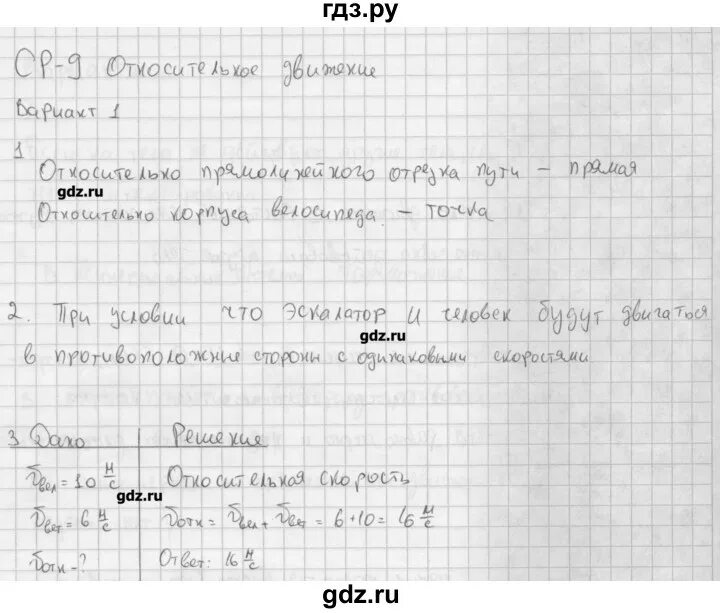 гдз.ру
СР-9 Относительное движение
Вариант 1
1
Относительно прямолинейного отрезка пути – прямая
gdz.ru
Относительно корпуса велосипеда. – точка
2. При условии что эскалатор и человек будут двигаться
gdz.ru
в противоположные стороны с одинаковыми скоростями
3 Дано Решение
υвел = 10 м/с Относительная скорость
gdz.ru
υвет = 6 м/с υотн = υвел + υвет = 6 + 10 = 16 м/с
υотн - ? Ответ: 16 м/с
gdz.ru